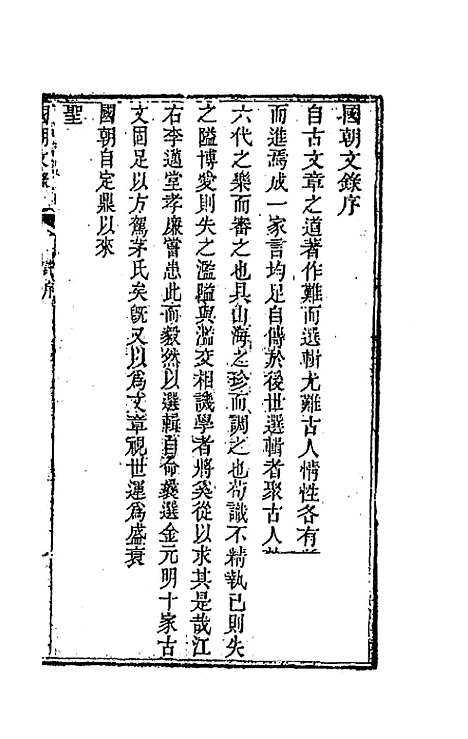 國朝文錄序
自古文章之道著作難而選輯尤難古人情性各有
而進焉成一家言均足自傳於後世選輯者聚古人
六代之樂而審之也具山海之珍而調之也苟識不精執已則失
之隘博愛則失之濫隘與濫交相譏學者將奚從以求其是哉江
右李邁堂孝廉嘗患此而毅然以選輯自命曩選金元明十家古
文固足以方駕茅氏矣旣又以爲文章視世運爲盛衰
國朝自定鼎以來
聖
國朝文錄 序